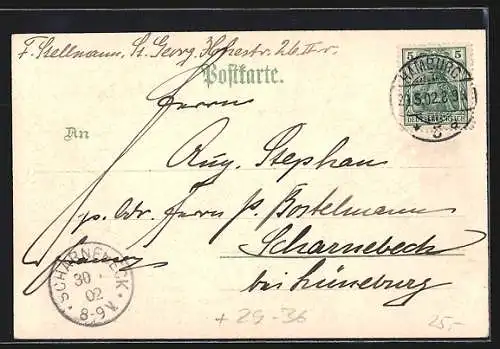 F. Stellmann, St. Georg, Hohestr. 26 II r.
Postkarte.
5 5
HAMBURG
15.02.8-9N
DEUTSCHES REICH
* 8 d
Herrn
An
Aug. Stephan
p. Adr. Herrn P. Bostelmann
Scharnebeck
bei Lüneburg
SCHARNEBECK
30
02
8-9V.
+ 29-36
25,-